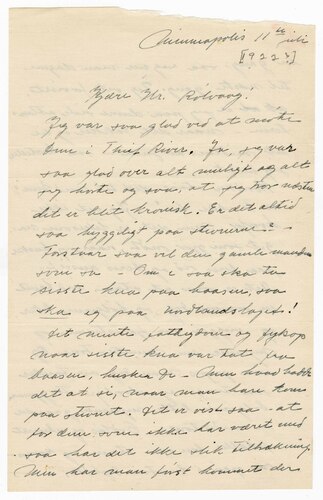 Minneapolis 11te juli
[1922?]
Kjære Hr. Rölvaag!
Jeg var saa glad ved at møte
Dem i Thief River. Ja, jeg var
saa glad over alt mulig og alt
jeg hørte og saa, at jeg tror næsten
det er blit kronisk. Er det altid
saa hyggelig paa stevnerne?
Forstaar saa vel den gamle manden
som sa - Om i saa ska ta
sisste kua paa baasen, saa
ska eg paa nordlandslaget!
Det mente fattigdom og
naar sisste kua var tat fra
baasen, husker De - Men hvad hadde
det at si, naar man bare kom
paa stevnet. Det er visst saa - at
for dem, som ikke har været med
saa har det ikke slik tiltrækning
Men har man først kommet der